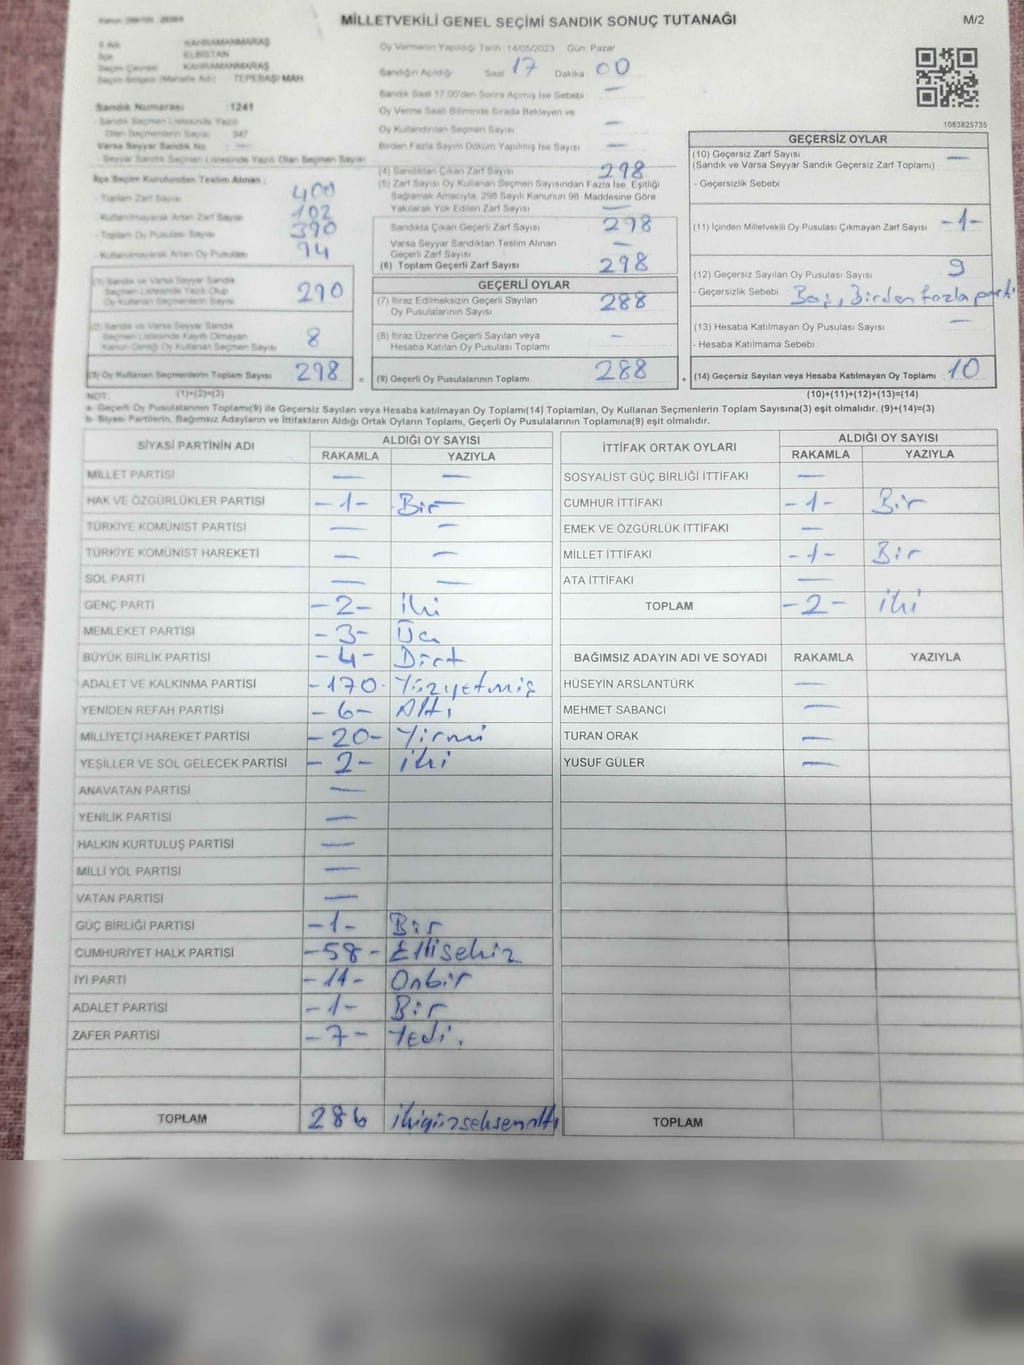 MİLLETVEKİLİ GENEL SEÇİMİ SANDIK SONUÇ TUTANAĞI
M/2
İl Adı KAHRAMANMARAŞ
İlçe ELBİSTAN
Seçim Çevresi KAHRAMANMARAŞ
Seçim Bölgesi (Mahalle Adı) TEPEBAŞI MAH
Sandık Numarası :1241
Sandık Seçmen Listesinde Yazılı
Olan Seçmenlerin Sayısı 347
Varsa Seyyar Sandık No
- Seyyar Sandık Seçmen Listesinde Yazılı Olan Seçmen Sayısı
İlçe Seçim Kurulundan Teslim Alınan :
- Toplam Zarf Sayısı 400
- Kullanılmayarak Artan Zarf Sayısı 102
- Toplam Oy Pusulası Sayısı 390
- Kullanılmayarak Artan Oy Pusulası 94
(1) Sandık ve Varsa Seyyar Sandık
Seçmen Listesinde Yazılı Olup
Oy Kullanan Seçmenlerin Sayısı 290
(2) Sandık ve Varsa Seyyar Sandık
Seçmen Listesinde Kayıtlı Olmayan
Kanun Gereği Oy Kullanan Seçmen Sayısı 8
(3) Oy Kullanan Seçmenlerin Toplam Sayısı 298
Oy Vermenin Yapıldığı Tarih 14/05/2023 Gün Pazar
Sandığın Açıldığı Saat 17 Dakika 00
Sandık Saat 17.00'den Sonra Açılmış İse Sebebi —
Oy Verme Saati Bitiminde Sırada Bekleyen ve
Oy Kullandırılan Seçmen Sayısı —
Birden Fazla Sayım Döküm Yapılmış İse Sayısı —
(4) Sandıktan Çıkan Zarf Sayısı 298
(5) Zarf Sayısı Oy Kullanan Seçmen Sayısından Fazla İse, Eşitliği
Sağlamak Amacıyla, 298 Sayılı Kanunun 98. Maddesine Göre
Yakılarak Yok Edilen Zarf Sayısı —
Sandıkta Çıkan Geçerli Zarf Sayısı 298
Varsa Seyyar Sandıktan Teslim Alınan
Geçerli Zarf Sayısı —
(6) Toplam Geçerli Zarf Sayısı 298
GEÇERLİ OYLAR
(7) İtiraz Edilmeksizin Geçerli Sayılan
Oy Pusulalarının Sayısı 288
(8) İtiraz Üzerine Geçerli Sayılan veya
Hesaba Katılan Oy Pusulası Toplamı —
= (9) Geçerli Oy Pusulalarının Toplamı 288
1083825735
GEÇERSİZ OYLAR
(10) Geçersiz Zarf Sayısı —
(Sandık ve Varsa Seyyar Sandık Geçersiz Zarf Toplamı)
- Geçersizlik Sebebi
(11) İçinden Milletvekili Oy Pusulası Çıkmayan Zarf Sayısı -1-
(12) Geçersiz Sayılan Oy Pusulası Sayısı 9
- Geçersizlik Sebebi Boş, Birden fazla parti
(13) Hesaba Katılmayan Oy Pusulası Sayısı —
- Hesaba Katılmama Sebebi
+ (14) Geçersiz Sayılan veya Hesaba Katılmayan Oy Toplamı 10
NOT: (1)+(2)=(3) (10)+(11)+(12)+(13)=(14)
a- Geçerli Oy Pusulalarının Toplamı(9) ile Geçersiz Sayılan veya Hesaba katılmayan Oy Toplamı(14) Toplamları, Oy Kullanan Seçmenlerin Toplam Sayısına(3) eşit olmalıdır. (9)+(14)=(3)
b- Siyasi Partilerin, Bağımsız Adayların ve İttifakların Aldığı Ortak Oyların Toplamı, Geçerli Oy Pusulalarının Toplamına(9) eşit olmalıdır.
SİYASİ PARTİNİN ADI ALDIĞI OY SAYISI
RAKAMLA YAZIYLA
MİLLET PARTİSİ — —
HAK VE ÖZGÜRLÜKLER PARTİSİ -1- Bir
TÜRKİYE KOMÜNİST PARTİSİ — —
TÜRKİYE KOMÜNİST HAREKETİ — —
SOL PARTİ — —
GENÇ PARTİ -2- iki
MEMLEKET PARTİSİ -3- Üç
BÜYÜK BİRLİK PARTİSİ -4- Dört
ADALET VE KALKINMA PARTİSİ -170- Yüzyetmiş
YENİDEN REFAH PARTİSİ -6- Altı
MİLLİYETÇİ HAREKET PARTİSİ -20- Yirmi
YEŞİLLER VE SOL GELECEK PARTİSİ -2- iki
ANAVATAN PARTİSİ —
YENİLİK PARTİSİ —
HALKIN KURTULUŞ PARTİSİ —
MİLLİ YOL PARTİSİ —
VATAN PARTİSİ —
GÜÇ BİRLİĞİ PARTİSİ -1- Bir
CUMHURİYET HALK PARTİSİ -58- Ellisekiz
İYİ PARTİ -11- Onbir
ADALET PARTİSİ -1- Bir
ZAFER PARTİSİ -7- Yedi.
TOPLAM 286 ikiyüzseksenaltı
İTTİFAK ORTAK OYLARI ALDIĞI OY SAYISI
RAKAMLA YAZIYLA
SOSYALİST GÜÇ BİRLİĞİ İTTİFAKI —
CUMHUR İTTİFAKI -1- Bir
EMEK VE ÖZGÜRLÜK İTTİFAKI —
MİLLET İTTİFAKI -1- Bir
ATA İTTİFAKI —
TOPLAM -2- iki
BAĞIMSIZ ADAYIN ADI VE SOYADI RAKAMLA YAZIYLA
HÜSEYİN ARSLANTÜRK —
MEHMET SABANCI —
TURAN ORAK —
YUSUF GÜLER —
TOPLAM